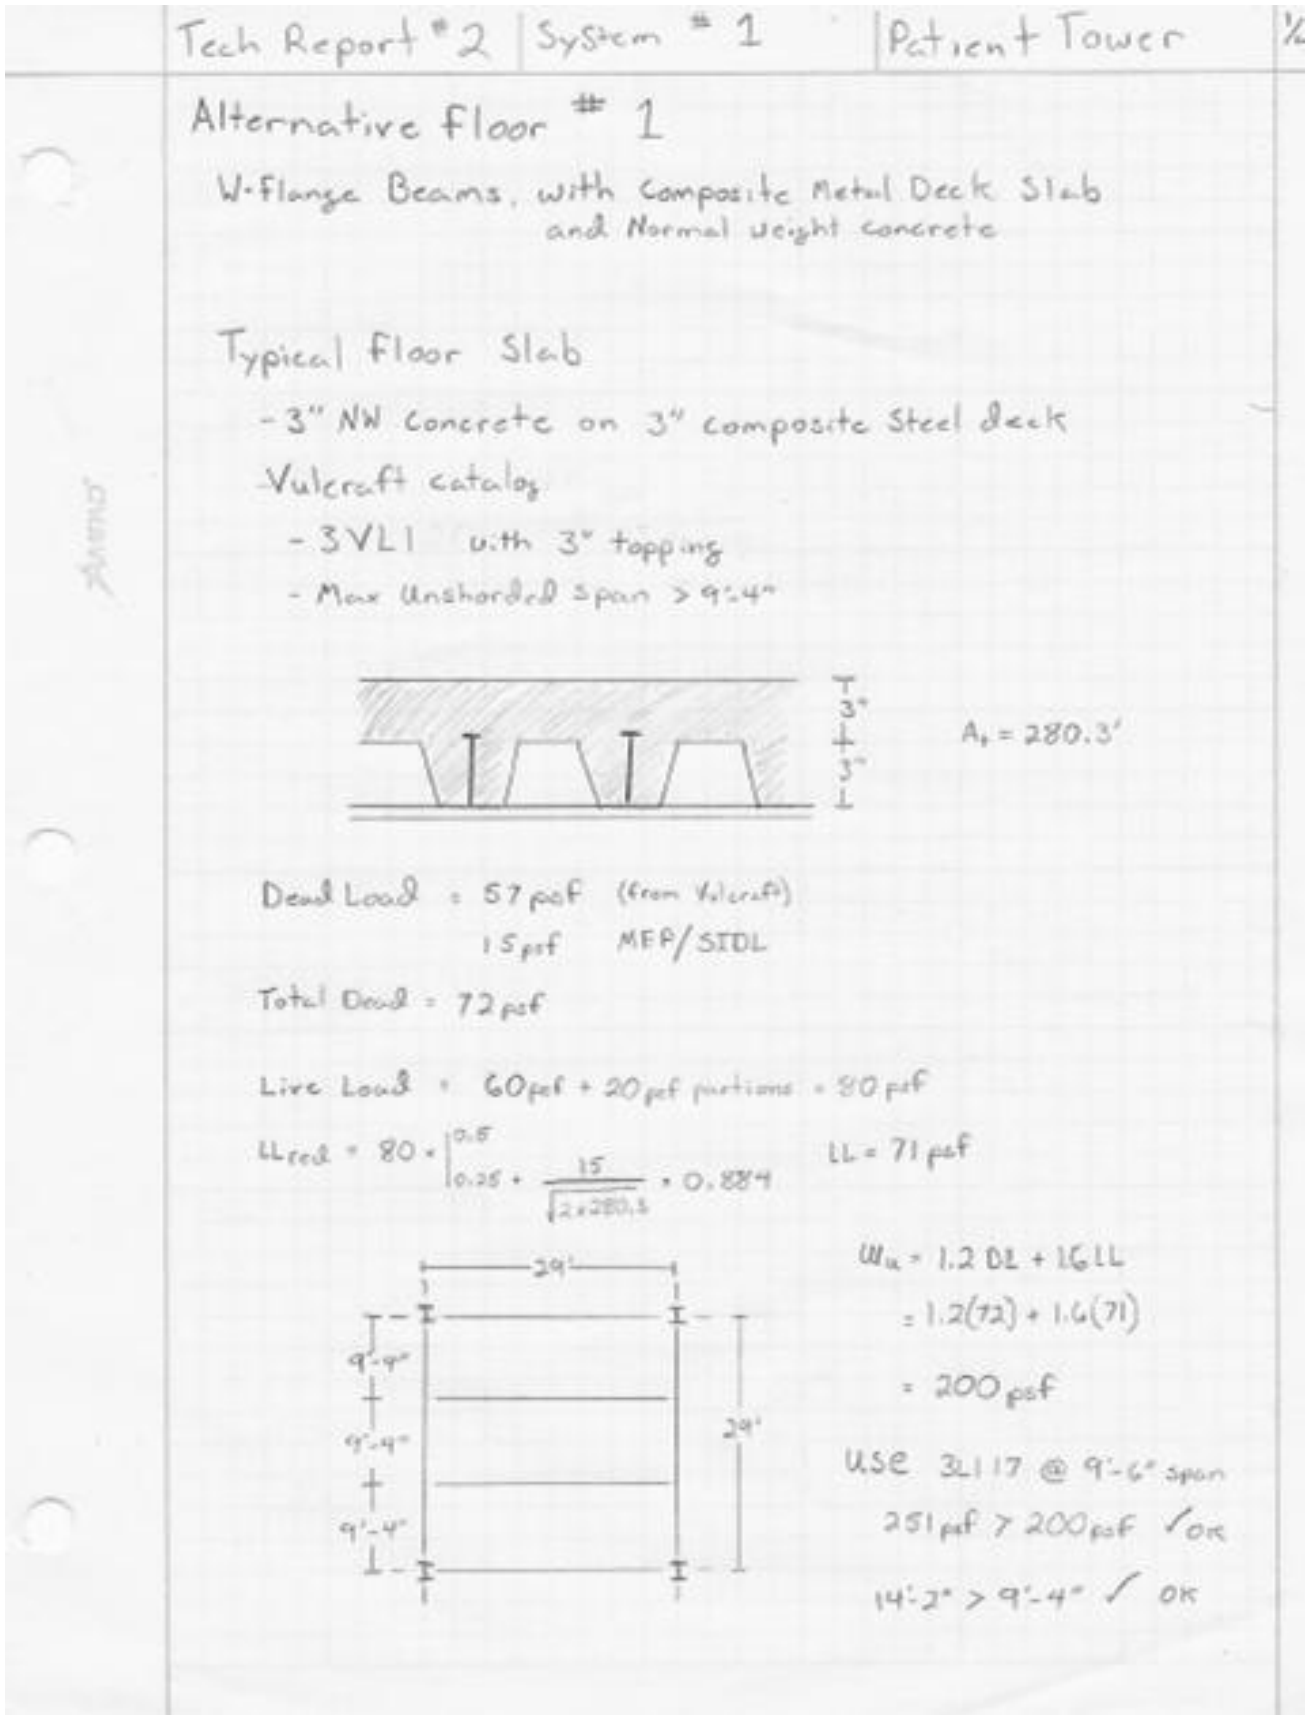 Tech Report #2 System #1 Patient Tower
Alternative floor #1
W-Flange Beams, with Composite Metal Deck Slab
and Normal weight concrete
Typical floor Slab
- 3" NW Concrete on 3" composite Steel deck
Vulcraft catalog
- 3VLI with 3" topping
- Max Unshorded span > 9'-4"
3"
3"
At = 280.3'
Dead Load = 57 psf (from Vulcraft)
15 psf MEP/SIDL
Total Dead = 72 psf
Live Load = 60 psf + 20 psf partions = 80 psf
LLred = 80 * | 0.5
0.25 + 15 / √2x280.3 = 0.884
LL = 71 psf
Wu = 1.2 DL + 1.6 LL
= 1.2(72) + 1.6(71)
= 200 psf
29'
9'-4"
9'-4"
9'-4"
29'
use 3LI 17 @ 9'-6" span
251 psf > 200 psf ✓ OK
14'-2" > 9'-4" ✓ OK